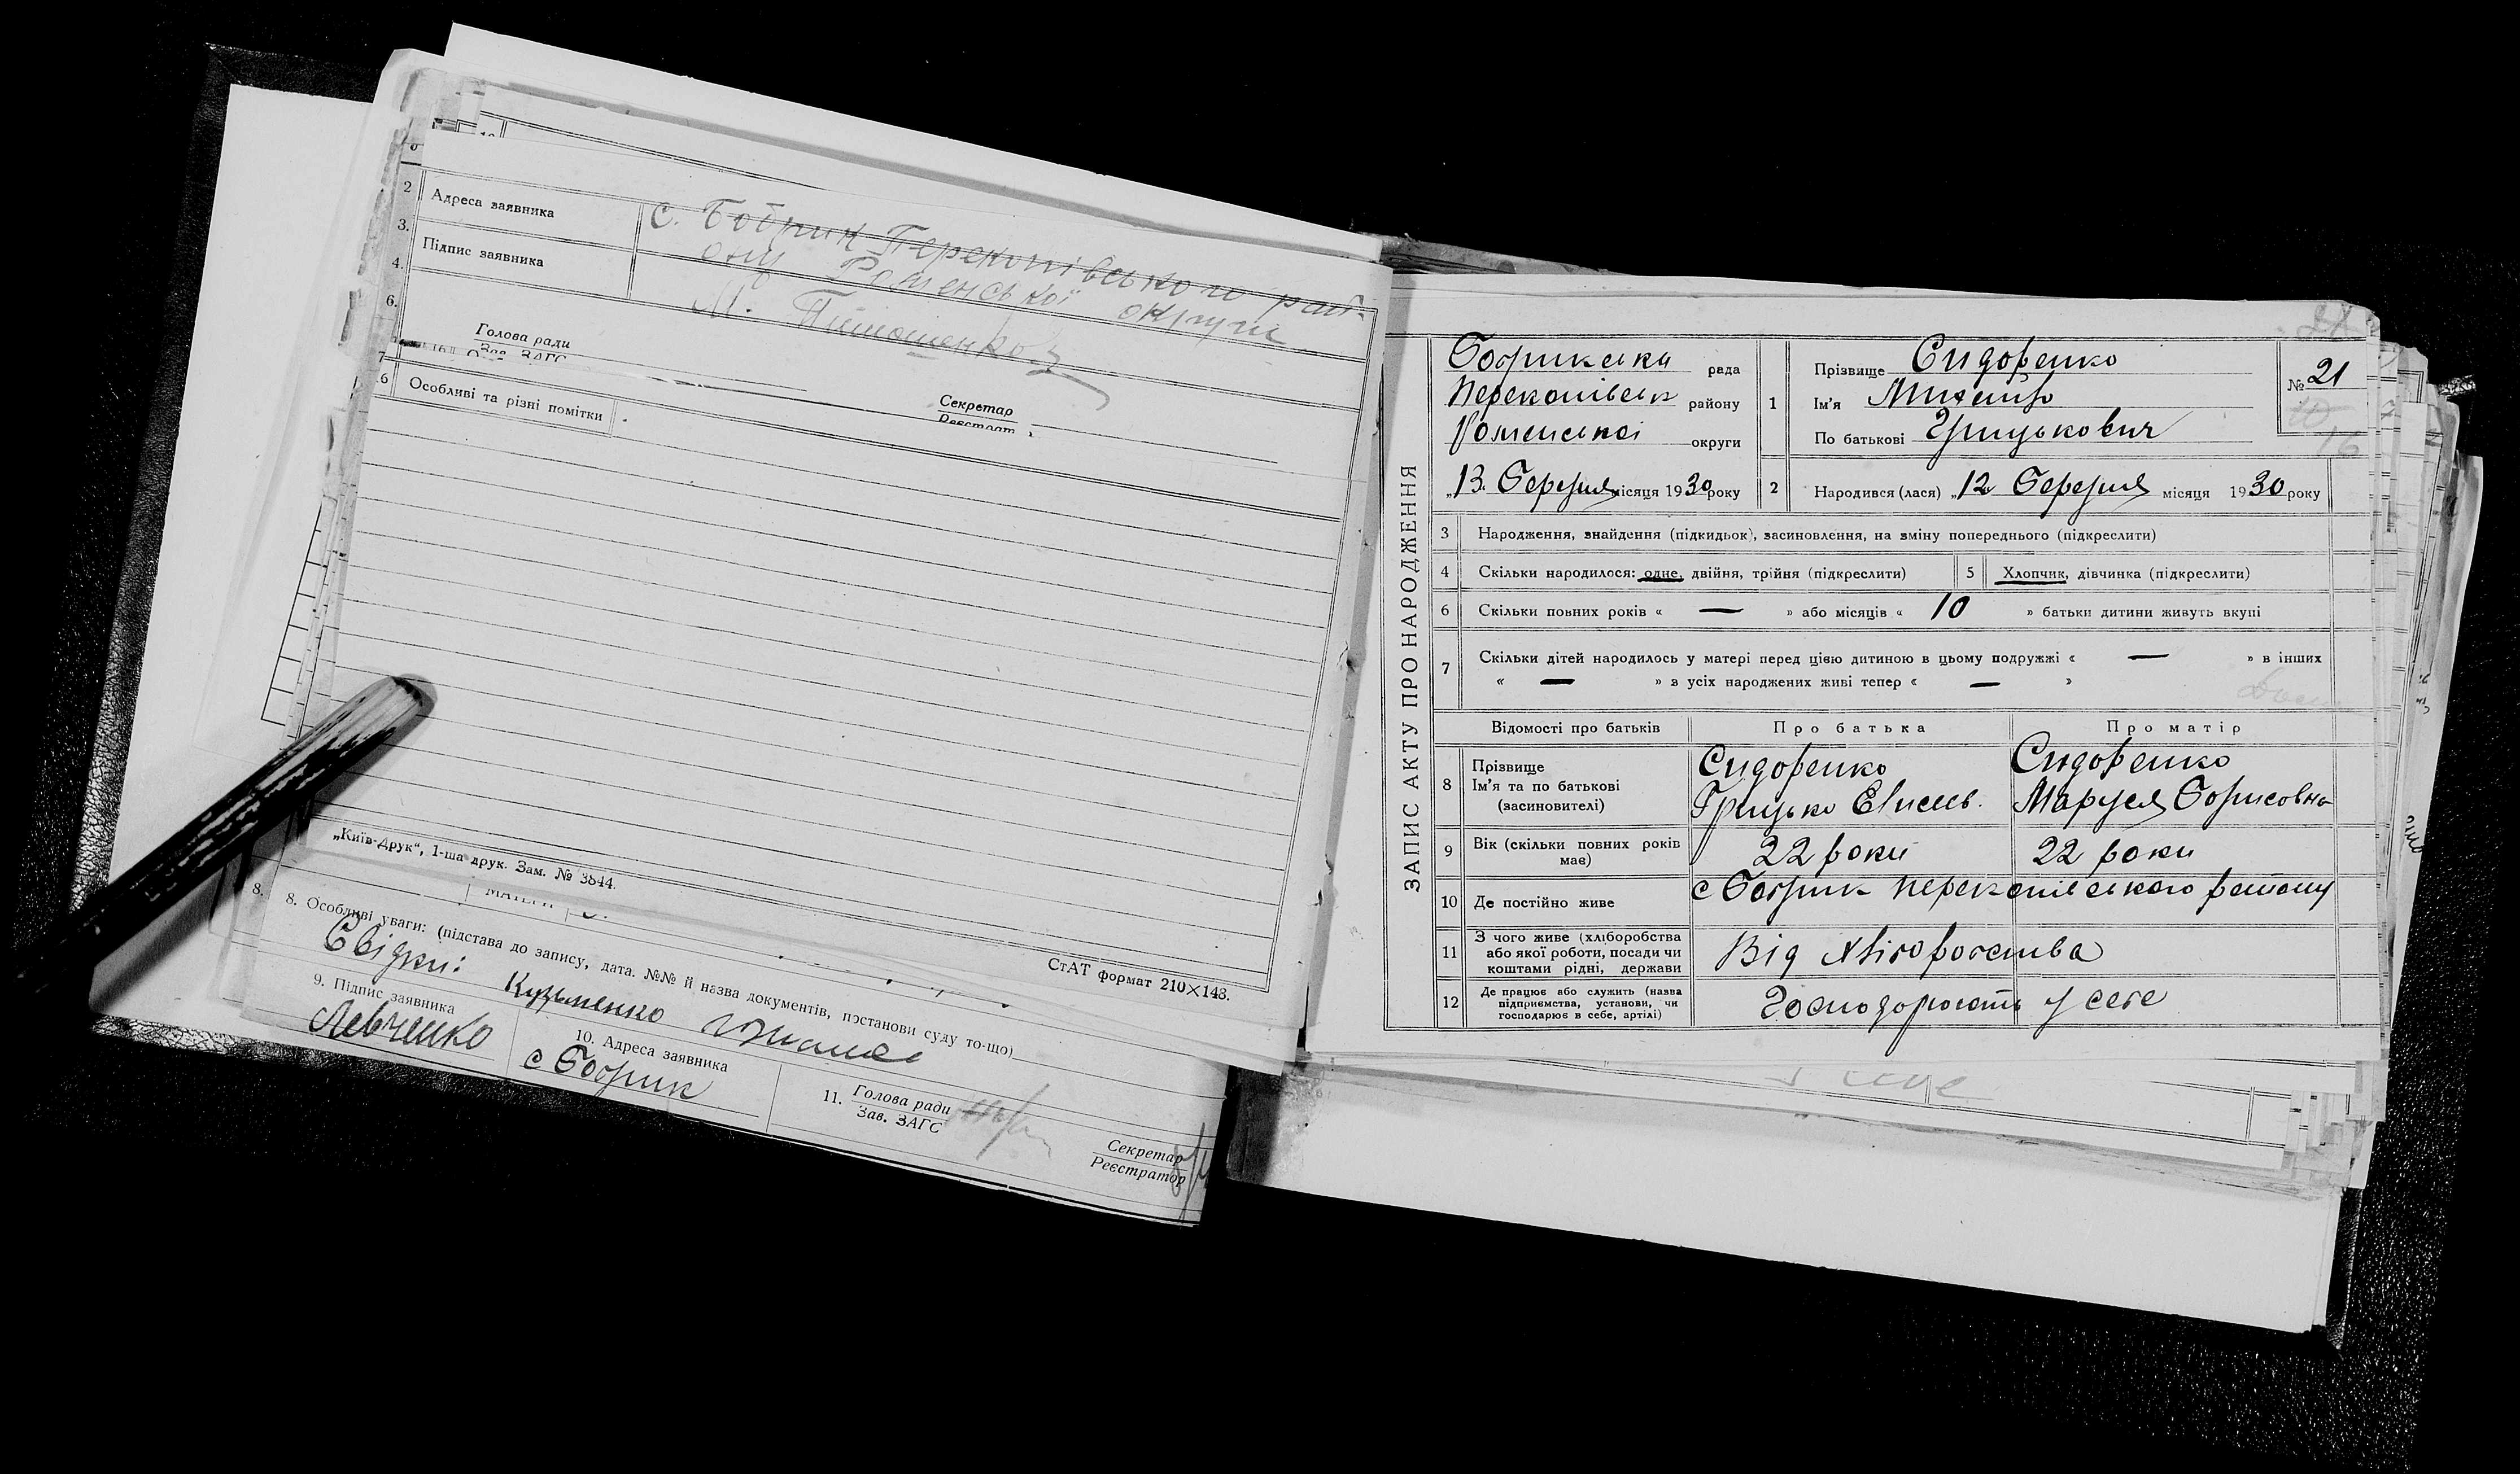 2
Адреса заявника
с. Бобрик Перекопівського рай-
ону Роменської округи
3.
Підпис заявника
4.
М. Тимошенко
6.
Голова ради
Зав. ЗАГС
Секретар
Реєстрат
7
16 Особливі та різні помітки
„Київ-Друк“, 1-ша друк. Зам. № 3844.
СтАТ формат 210×148.
8.
8. Особливі уваги: (підстава до запису, дата. №№ й назва документів, постанови суду то-що)
Свідки: Кузьменко
9. Підпис заявника
Левченко
10. Адреса заявника
с Бобрик
11. Голова ради
Зав. ЗАГС
Секретар
Реєстратор
ЗАПИС АКТУ ПРО НАРОДЖЕННЯ
Бобрикська рада
Перекопівськ району
Роменської округи
„13. Березня місяця 1930 року
1 Прізвище Сидоренко
Ім'я Михайло
По батькові Грицькович
№ 21
16
2 Народився (лася) „12 Березня місяця 1930 року
3 Народження, знайдення (підкидьок), засиновлення, на зміну попереднього (підкреслити)
4 Скільки народилося: одне, двійня, трійня (підкреслити) 5 Хлопчик, дівчинка (підкреслити)
6 Скільки повних років « — » або місяців « 10 » батьки дитини живуть вкупі
7 Скільки дітей народилось у матері перед цією дитиною в цьому подружжі « — » в інших
« — » з усіх народжених живі тепер « — »
Відомості про батьків Про батька Про матір
8 Прізвище
Ім'я та по батькові
(засиновителі)
Сидоренко
Грицько Елисеєв.
Сидоренко
Маруся Борисовна
9 Вік (скільки повних років
має)
22 роки 22 роки
10 Де постійно живе с Бобрик Перекопівського району
11 З чого живе (хліборобства
або якої роботи, посади чи
коштами рідні, держави
Від хліборобства
12 Де працює або служить (назва
підприємства, установи, чи
господарює в себе, артілі)
Господорюють у себе